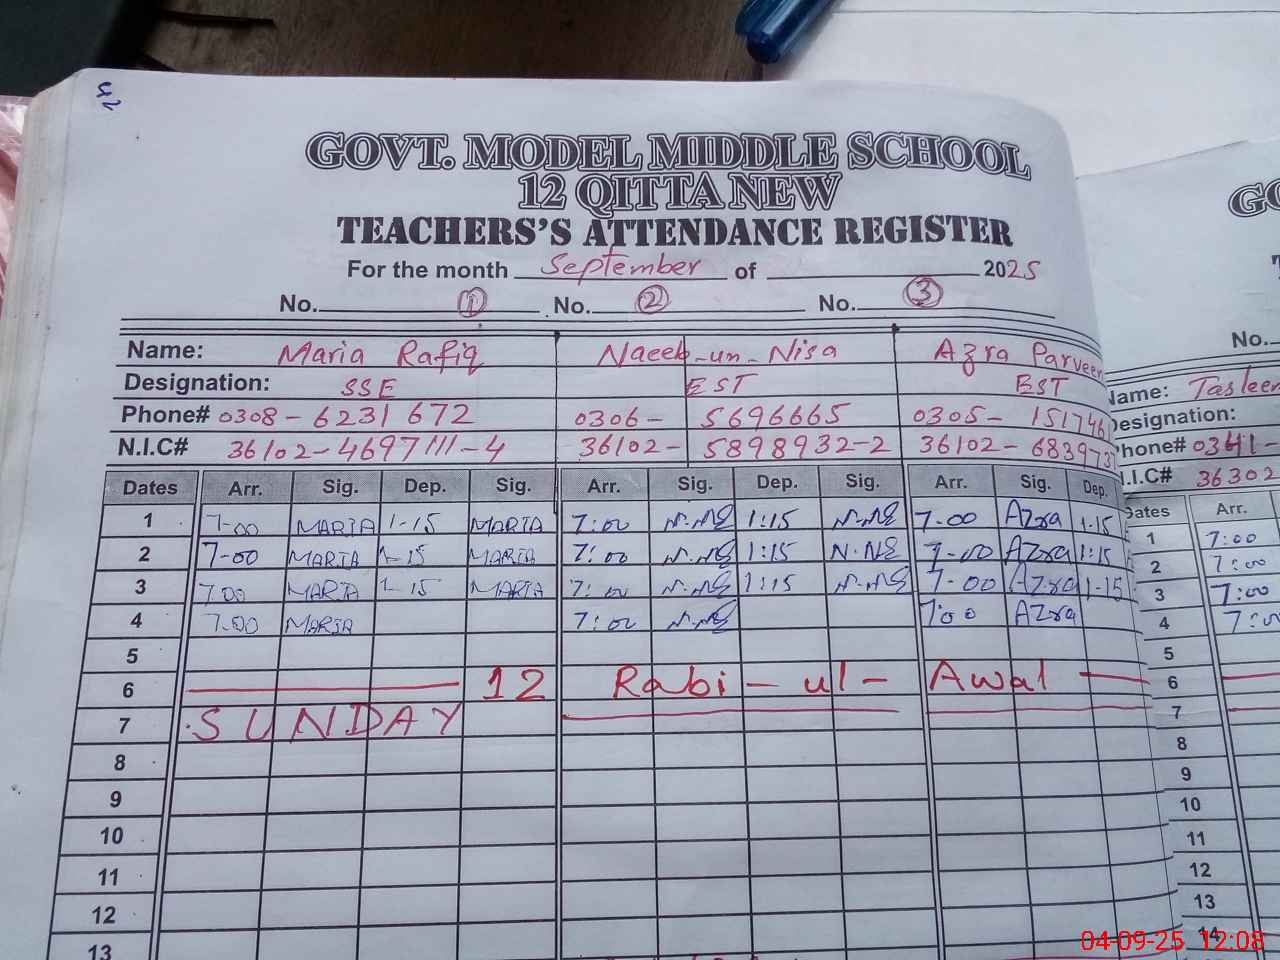 GOVT. MODEL MIDDLE SCHOOL
12 QITTA NEW
TEACHERS'S ATTENDANCE REGISTER
For the month September of 2025
No. 1 No. 2 No. 3
Name: Maria Rafiq Naeeb-un-Nisa Azra Parveen
Designation: SSE EST EST
Phone# 0308-6231672 0306-5696665 0305-151746
N.I.C# 36102-4697111-4 36102-5898932-2 36102-683973
Dates Arr. Sig. Dep. Sig. Arr. Sig. Dep. Sig. Arr. Sig. Dep.
1 7-00 MARIA 1-15 MARIA 7:00 N.NE 1:15 N.NE 7-00 Azra 1-15
2 7-00 MARIA 1-15 MARIA 7:00 N.NE 1:15 N.NE 7-00 Azra 1:15
3 7.00 MARIA 1-15 MARIA 7:00 N.NE 1:15 N.NE 7-00 Azra 1-15
4 7.00 MARIA 7:00 N.NE 7:00 Azra
5
6 12 Rabi-ul-Awal
7 SUNDAY
8
9
10
11
12
13
No.
Name: Tasleem
Designation:
Phone# 0341-
N.I.C# 36302
Dates Arr.
1 7:00
2 7:00
3 7:00
4 7:00
5
6
7
8
9
10
11
12
13
14
04-09-25 12:08